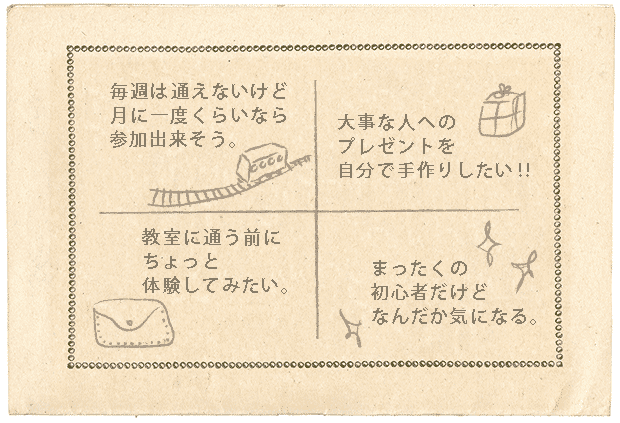 毎週は通えないけど
月に一度くらいなら
参加出来そう。
大事な人への
プレゼントを
自分で手作りしたい!!
教室に通う前に
ちょっと
体験してみたい。
まったくの
初心者だけど
なんだか気になる。